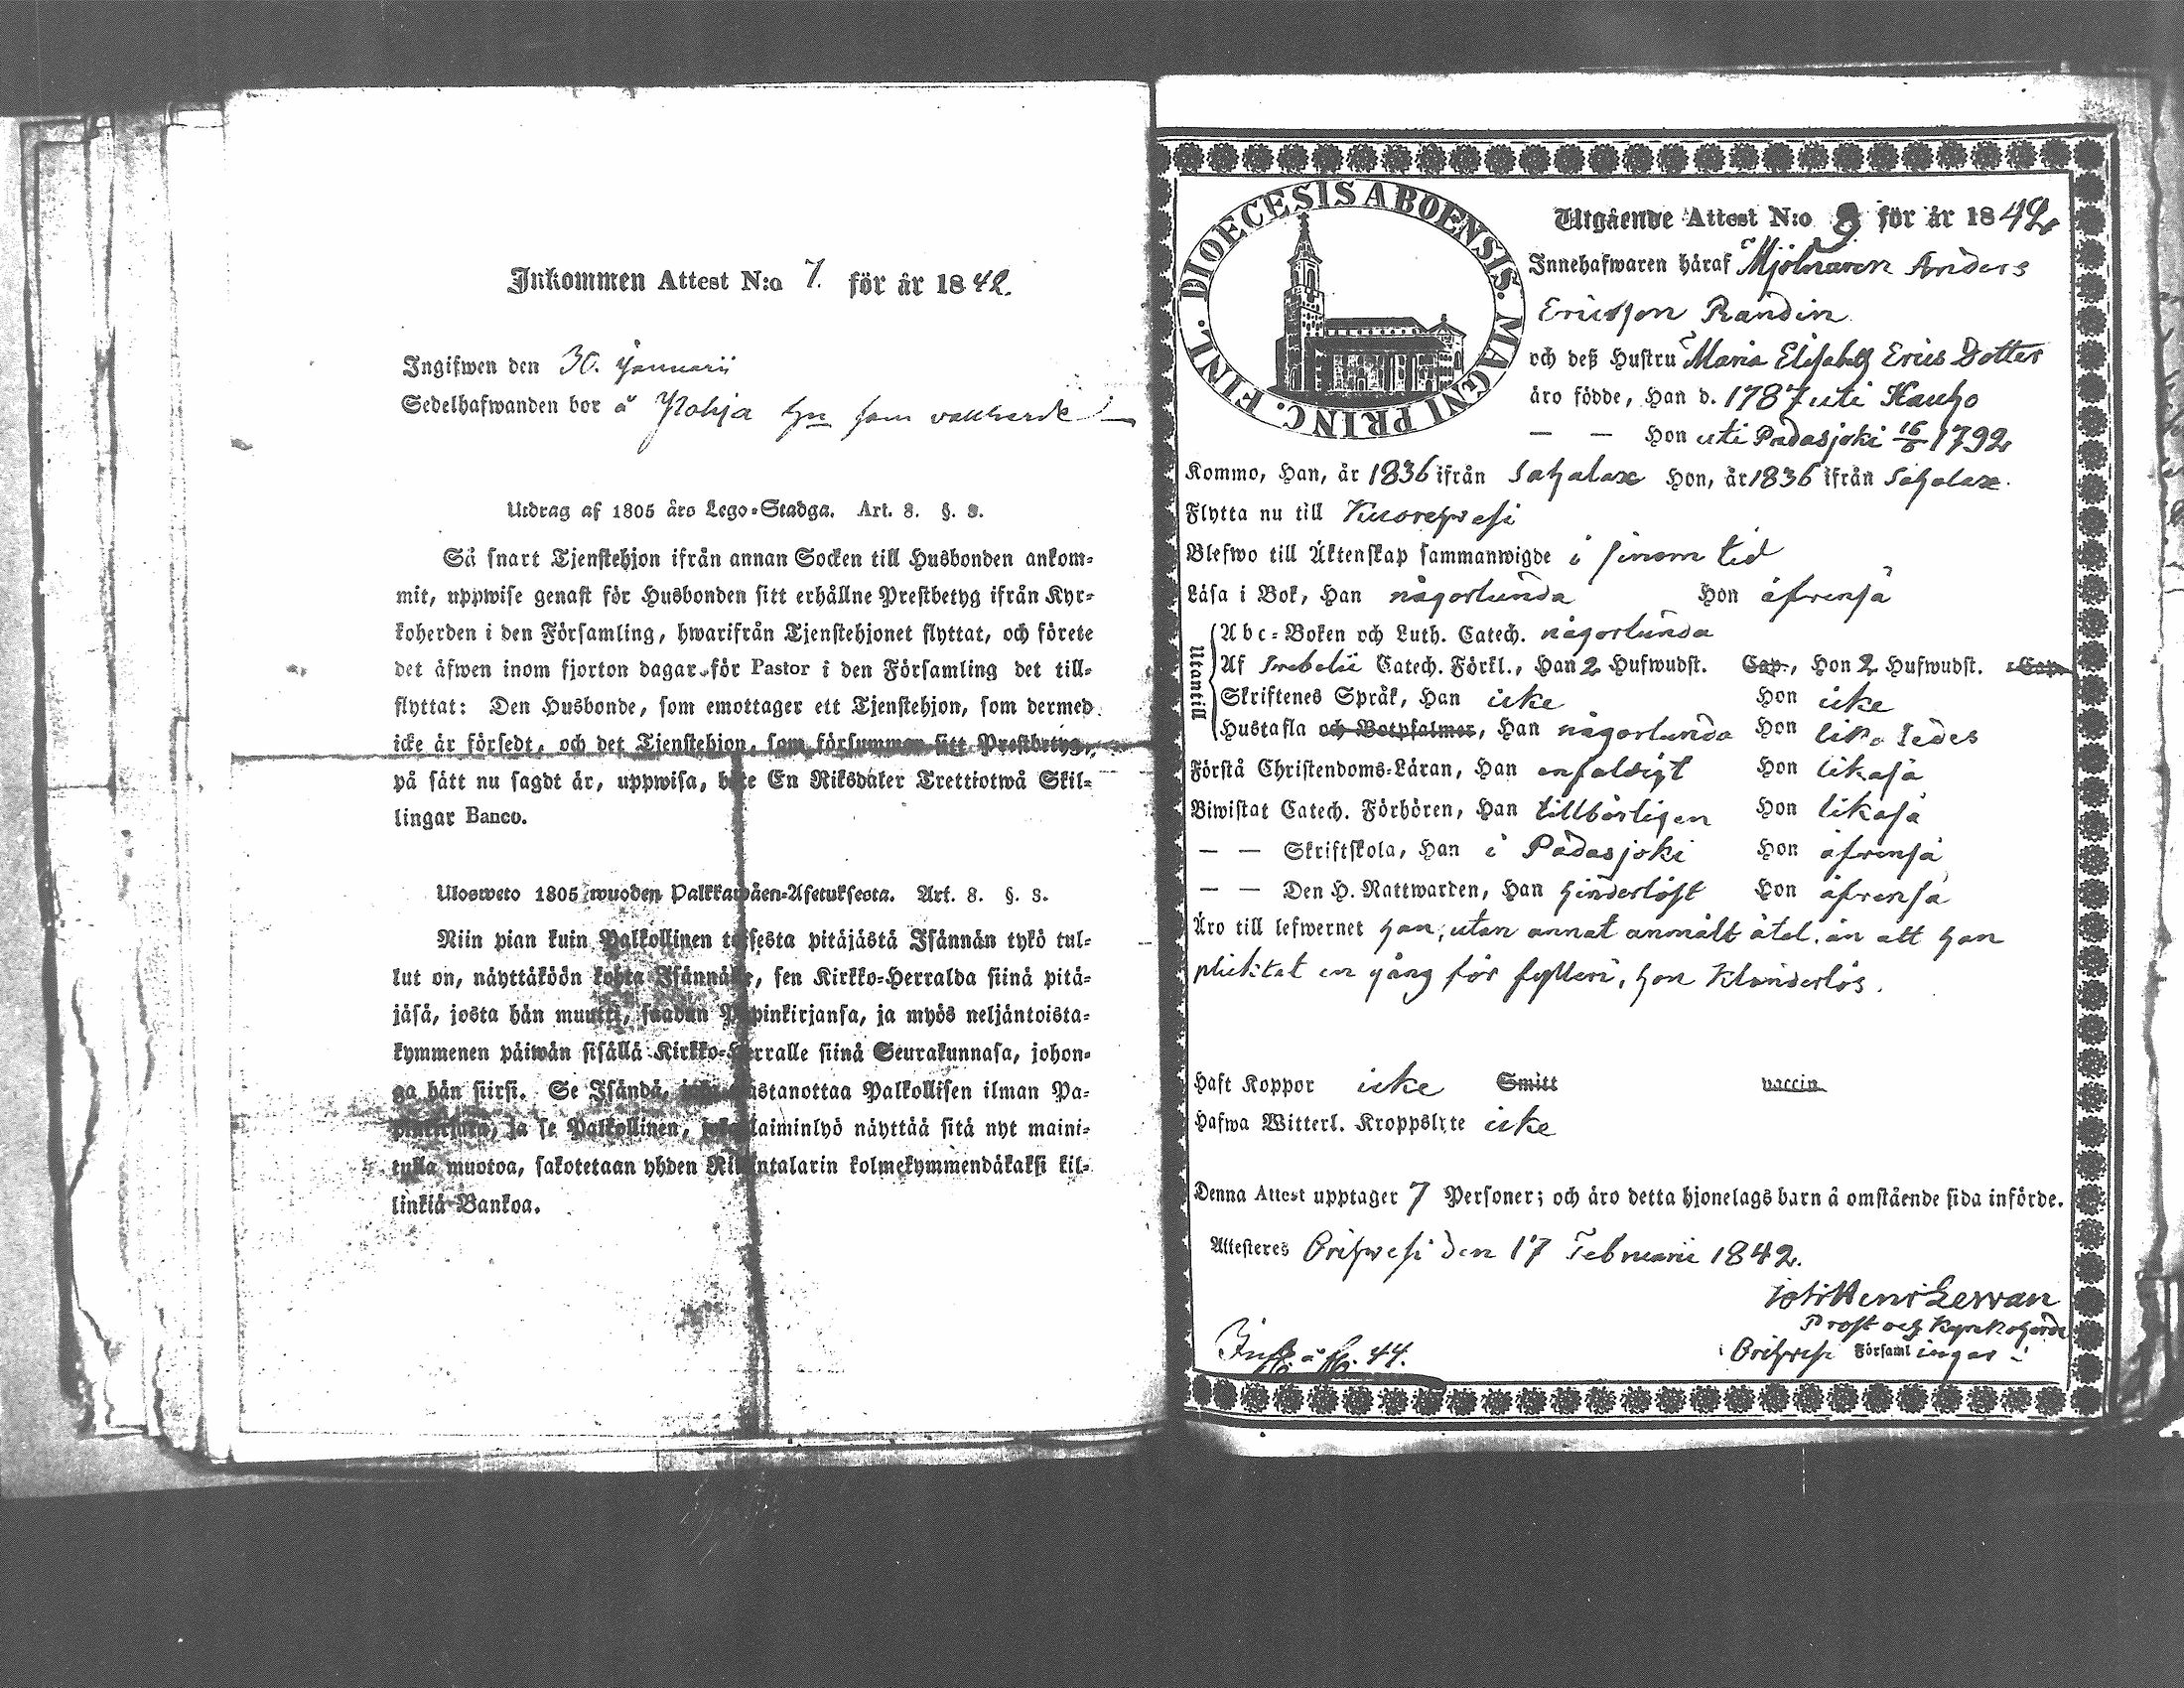 Inkommen Attest N:o 7. för år 1842.
Ingifwen den 30. Januarii
Sedelhafwanden bor å Pohja
Utdrag af 1805 års Lego-Stadga. Art. 8. §. 8.
Så snart Tjenstehjon ifrån annan Socken till Husbonden ankom-
mit, uppwise genast för Husbonden sitt erhållne Prestbetyg ifrån Kyr-
koherden i den Församling, hwarifrån Tjenstehjonet flyttat, och förete
det äfwen inom fjorton dagar för Pastor i den Församling det till-
flyttat: Den Husbonde, som emottager ett Tjenstehjon, som dermed
icke är försedt, och det Tjenstehjon, som försummar sitt Prestbetyg,
på sätt nu sagdt är, uppwisa, böte En Riksdaler Trettiotwå Skil-
lingar Banco.
Ulosweto 1805 wuoden Palkkawäen-Asetuksesta. Art. 8. §. 8.
Niin pian kuin Palkollinen toisesta pitäjästä Isännän tykö tul-
lut on, näyttäköön kohta Isännälle, sen Kirkko-Herralda siinä pitä-
jäsä, josta hän muutti, saadun Papinkirjansa, ja myös neljäntoista-
kymmenen päiwän sisällä Kirkko-Herralle siinä Seurakunnasa, johon-
ga hän siirsi. Se Isändä, joka wastanottaa Palkollisen ilman Pa-
pinkirjata, ja se Palkollinen, joka laiminlyö näyttää sitä nyt maini-
tulla muotoa, sakotetaan yhden Riksintalarin kolmekymmendäkaksi kil-
linkiä Bankoa.
DIOECESIS ABOENSIS. MAGNI PRINC. FINL.
Utgående Attest N:o 9 för år 1842
Innehafwaren häraf Mjölnaren Anders
Ericsson Randin
och deß Hustru Maria Elisabeth Erics Dotter
äro födde, Han d. 1787 uti Hauho
— — Hon uti Padasjoki 16/6 1792
Kommo, Han, år 1836 ifrån Sahalax Hon, år 1836 ifrån Sahalax.
Flytta nu till Kuorehwesi
Blefwo till Äktenskap sammanwigde i sinom tid
Läsa i Bok, Han någorlunda Hon äfwenså
Utantill
Abc-Boken och Luth. Catech. någorlunda
Af Swebelii Catech. Förkl., Han 2 Hufwudst. Cap., Hon 2 Hufwudst. Cap.
Skriftenes Språk, Han icke Hon icke
Hustafla och Botpsalmer, Han någorlunda Hon likaledes
Förstå Christendoms-Läran, Han enfaldigt Hon likaså
Biwistat Catech. Förhören, Han tillbörligen Hon likaså
— — Skriftskola, Han i Padasjoki Hon äfwenså
— — Den H. Nattwarden, Han hinderlöst Hon äfwenså
Äro till lefwernet han, utan annat anmält åtal, än att han
pliktat en gång för fylleri, hon klanderlös.
Haft Koppor icke Smitt vaccin
Hafwa Witterl. Kroppslyte icke
Denna Attest upptager 7 Personer; och äro detta hjonelags barn å omstående sida införde.
Attesteres Orihwesi den 17 Februarii 1842.
Prost och Kyrkoherde
i Orihwesi Församlingar
44.